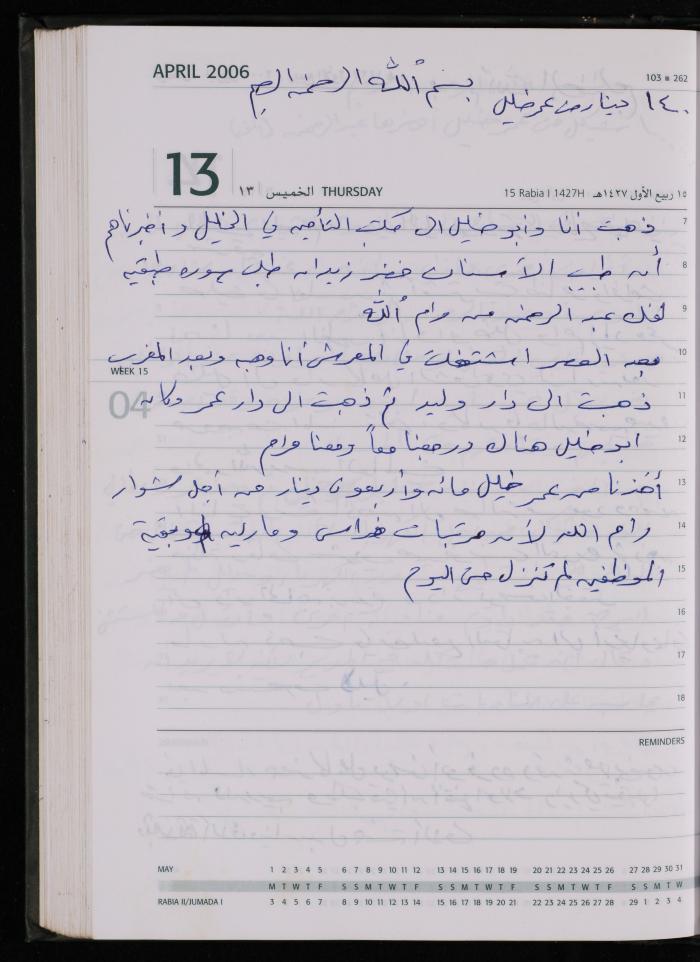 APRIL 2006
بسم الله الرحمن الرحيم
103 ■ 262
١٤٠ دينار من عمر خليل
13
١٣ الخميس THURSDAY
15 Rabia I 1427H ١٥ ربيع الأول ١٤٢٧هـ
7 ذهبت أنا وأبو خليل الى مكتب التأمين في الخليل وأخبرناهم
8 أن طبيب الأسنان خضر زيدان طلب صورة طبقية
9 لفك عبد الرحمن من رام الله
10 بعد العصر اشتغلت في المعرش أنا وهبه وبعد المغرب
WEEK 15
11 ذهبت الى دار وليد ثم ذهبت الى دار عمر وكان
04
12 ابو خليل هناك ورجعنا معاً ومعنا مرام
13 أخذنا من عمر خليل مائه وأربعون دينار من أجل مشوار
14 رام الله لأن مرتبات فراس ومارليه وبقية
15 الموظفين لم تنزل حتى اليوم
16
17
18
REMINDERS
MAY 1 2 3 4 5 6 7 8 9 10 11 12 13 14 15 16 17 18 19 20 21 22 23 24 25 26 27 28 29 30 31
M T W T F S S M T W T F S S M T W T F S S M T W T F S S M T W
RABIA II/JUMADA I 3 4 5 6 7 8 9 10 11 12 13 14 15 16 17 18 19 20 21 22 23 24 25 26 27 28 29 1 2 3 4